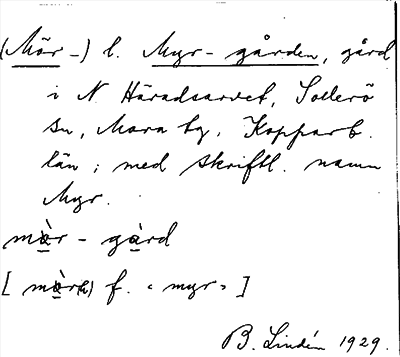 (Mör-) l. Myr-gården, gård
i N Häradsarvet, Sollerö
sn, Mora tg, Kopparb.
län; med skriftl. namn
Myr.
mòr - gàrd
[ mòr(ɑ) f. "myr" ]
B. Lindén 1929.